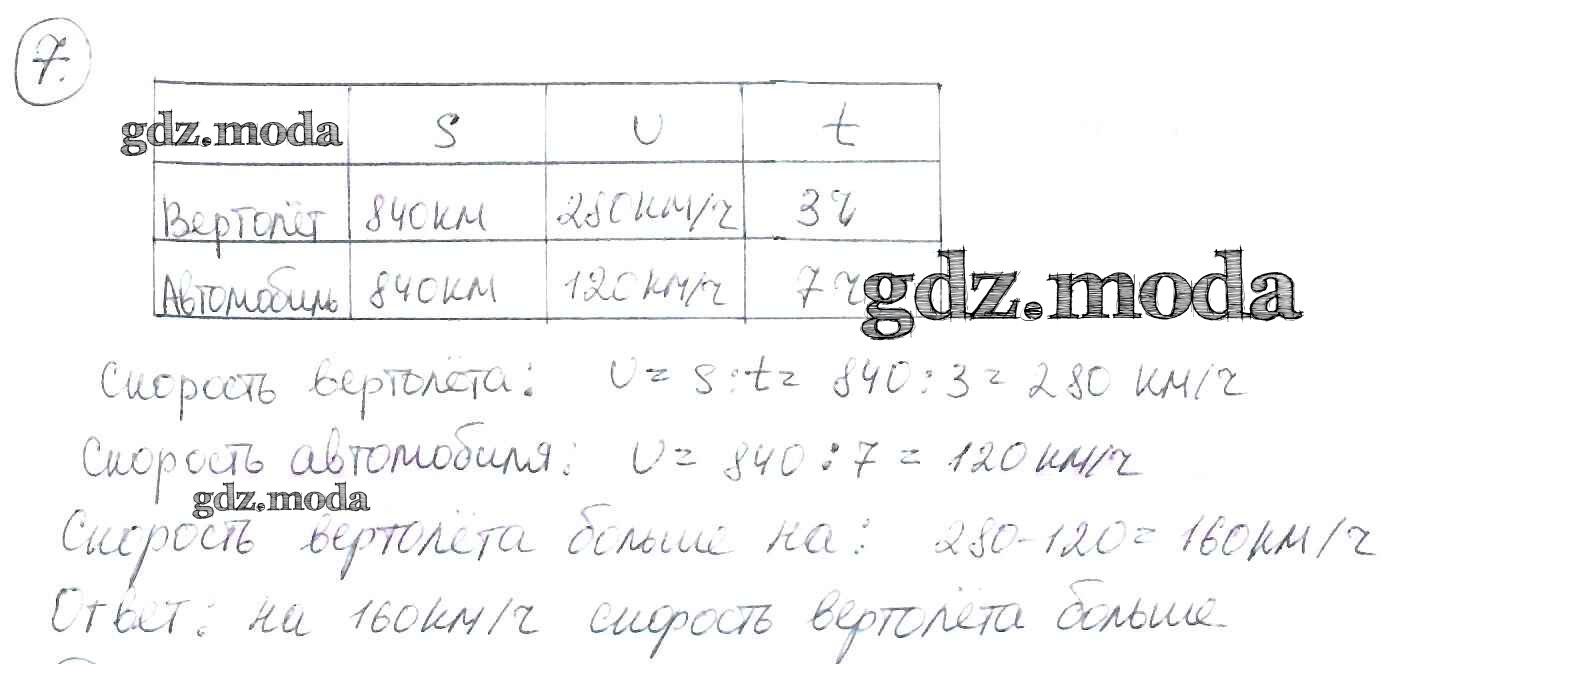 7.
gdz.moda S υ t
Вертолёт 840км 280км/ч 3ч
Автомобиль 840км 120км/ч 7ч
gdz.moda
Скорость вертолёта: υ = s : t = 840 : 3 = 280 км/ч
Скорость автомобиля: υ = 840 : 7 = 120км/ч
gdz.moda
Скорость вертолёта больше на: 280-120= 160км/ч
Ответ: на 160км/ч скорость вертолёта больше